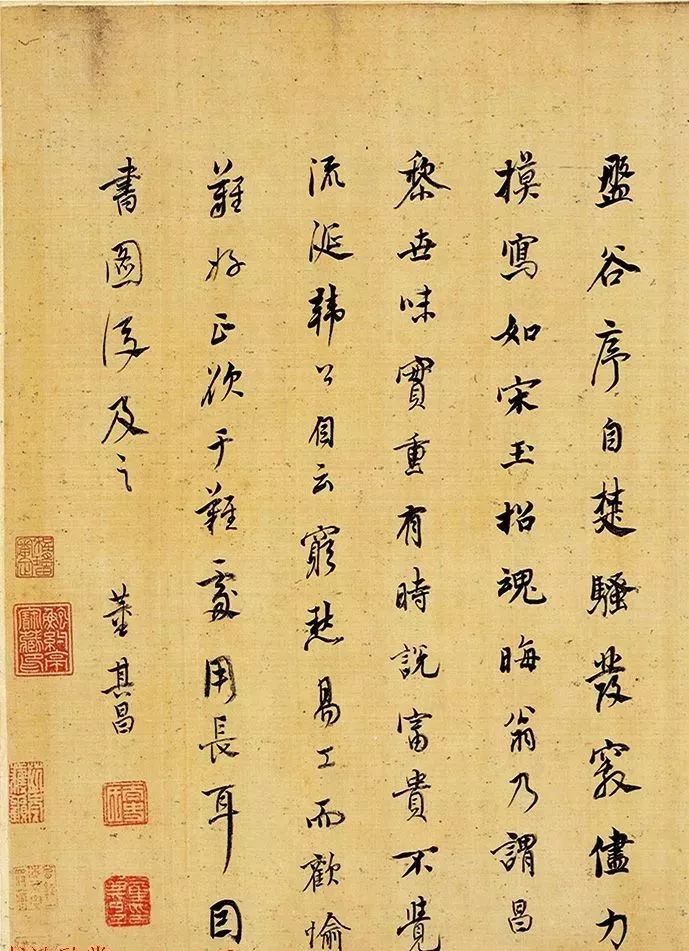 盤谷序自楚騷發竅儘力
摸寫如宋玉招魂晦翁乃謂昌
黎世味實重有時說富貴不覺
流涎韓公自云窮愁易工而歡愉
難好正欲于難處用長耳因
書圖後及之
董其昌